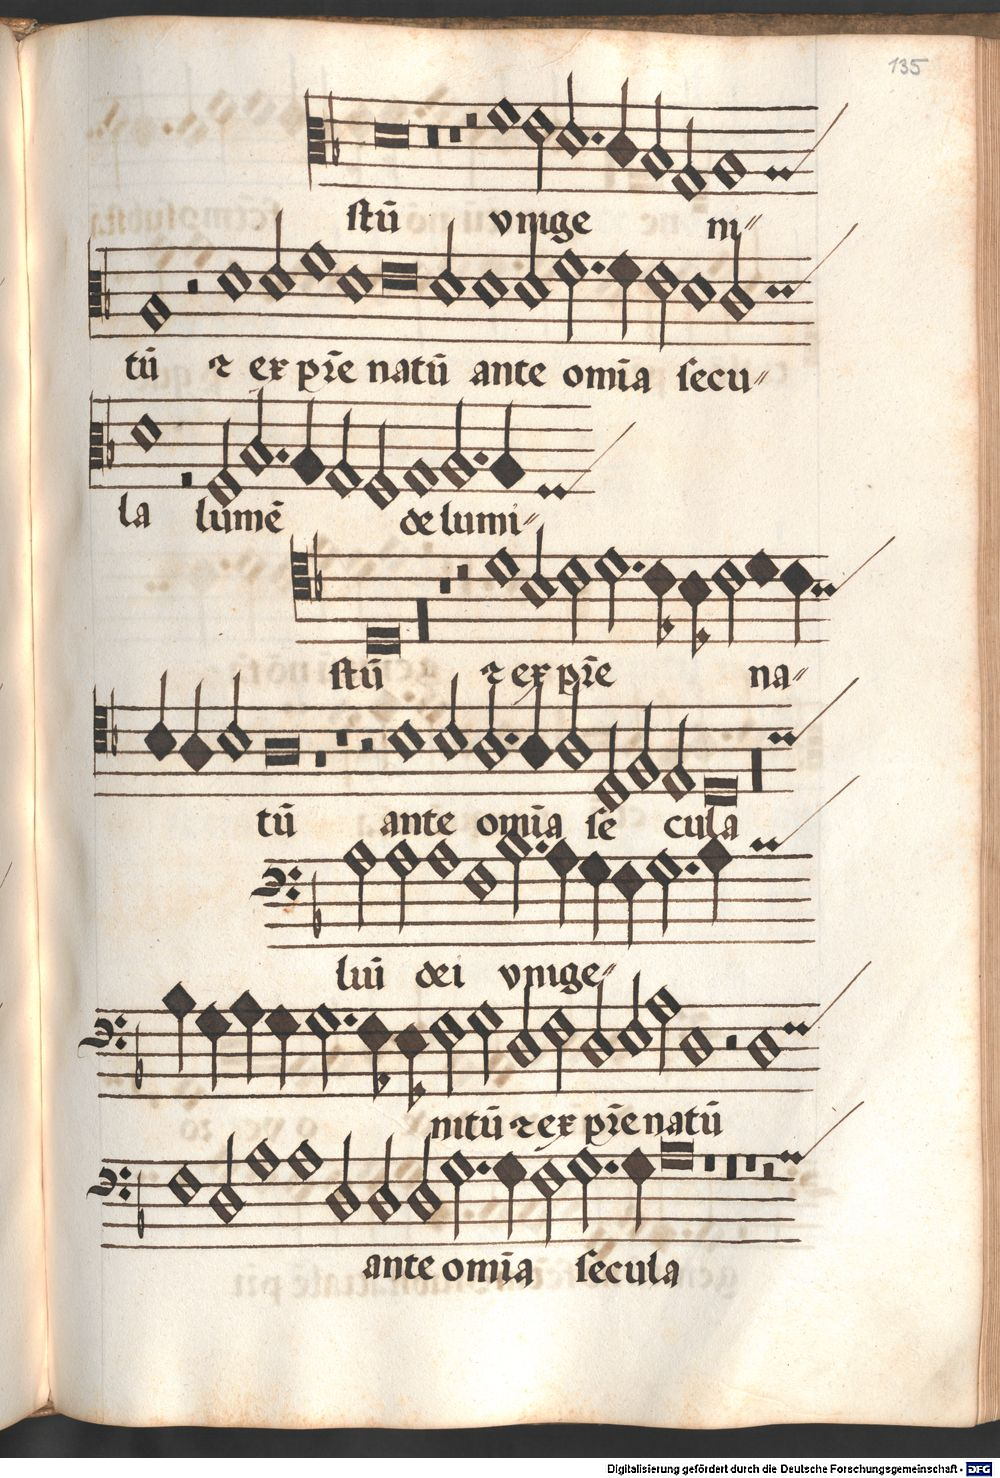 135
stū vnige ni〃
tū ⁊ ex pr̄e natū ante omīa secu〃
la lumē de lumi〃
stū ⁊ ex pr̄e na〃
tū ante omīa se cula
luī dei vnige〃
nitū ⁊ ex pr̄e natū
ante omīa secula
Digitalisierung gefördert durch die Deutsche Forschungsgemeinschaft - DFG